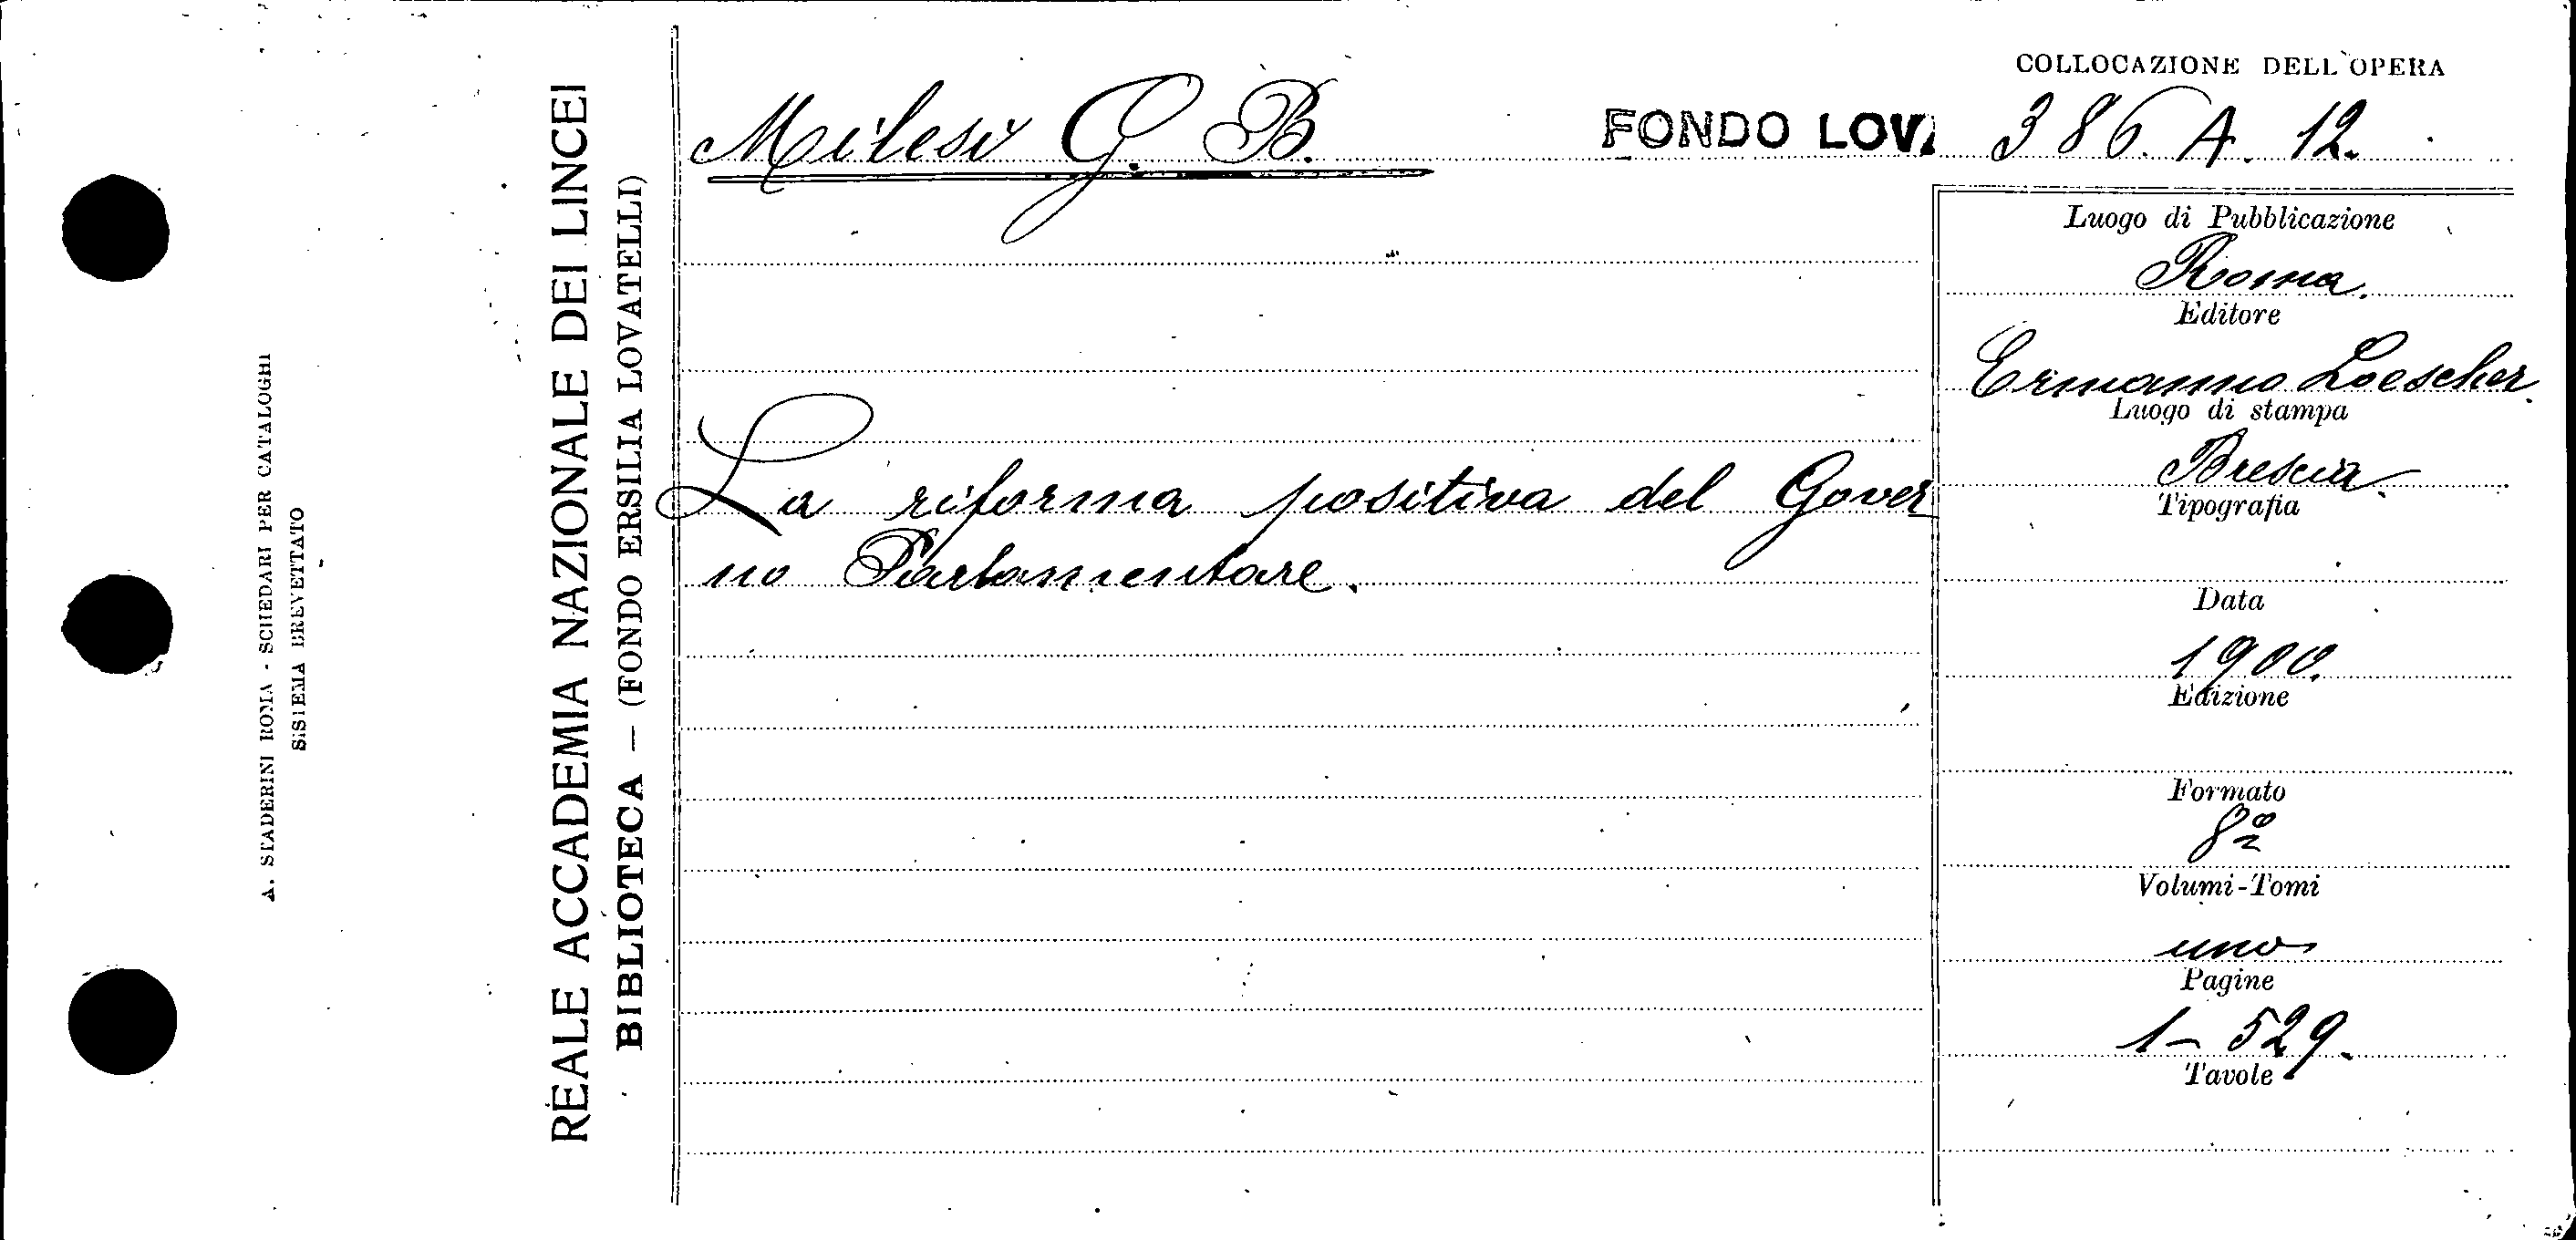 A. STADERINI ROMA - SCHEDARI PER CATALOGHI
SISTEMA BREVETTATO
REALE ACCADEMIA NAZIONALE DEI LINCEI
BIBLIOTECA — (FONDO ERSILIA LOVATELLI)
Milesi G. B.
FONDO LOV
La riforma positiva del Gover
no Parlamentare.
COLLOCAZIONE DELL'OPERA
386. A. 12.
Luogo di Pubblicazione
Roma.
Editore
Ermanno Loescher.
Luogo di stampa
Brescia.
Tipografia
Data
1900.
Edizione
Formato
8º
Volumi-Tomi
uno
Pagine
1- 529.
Tavole